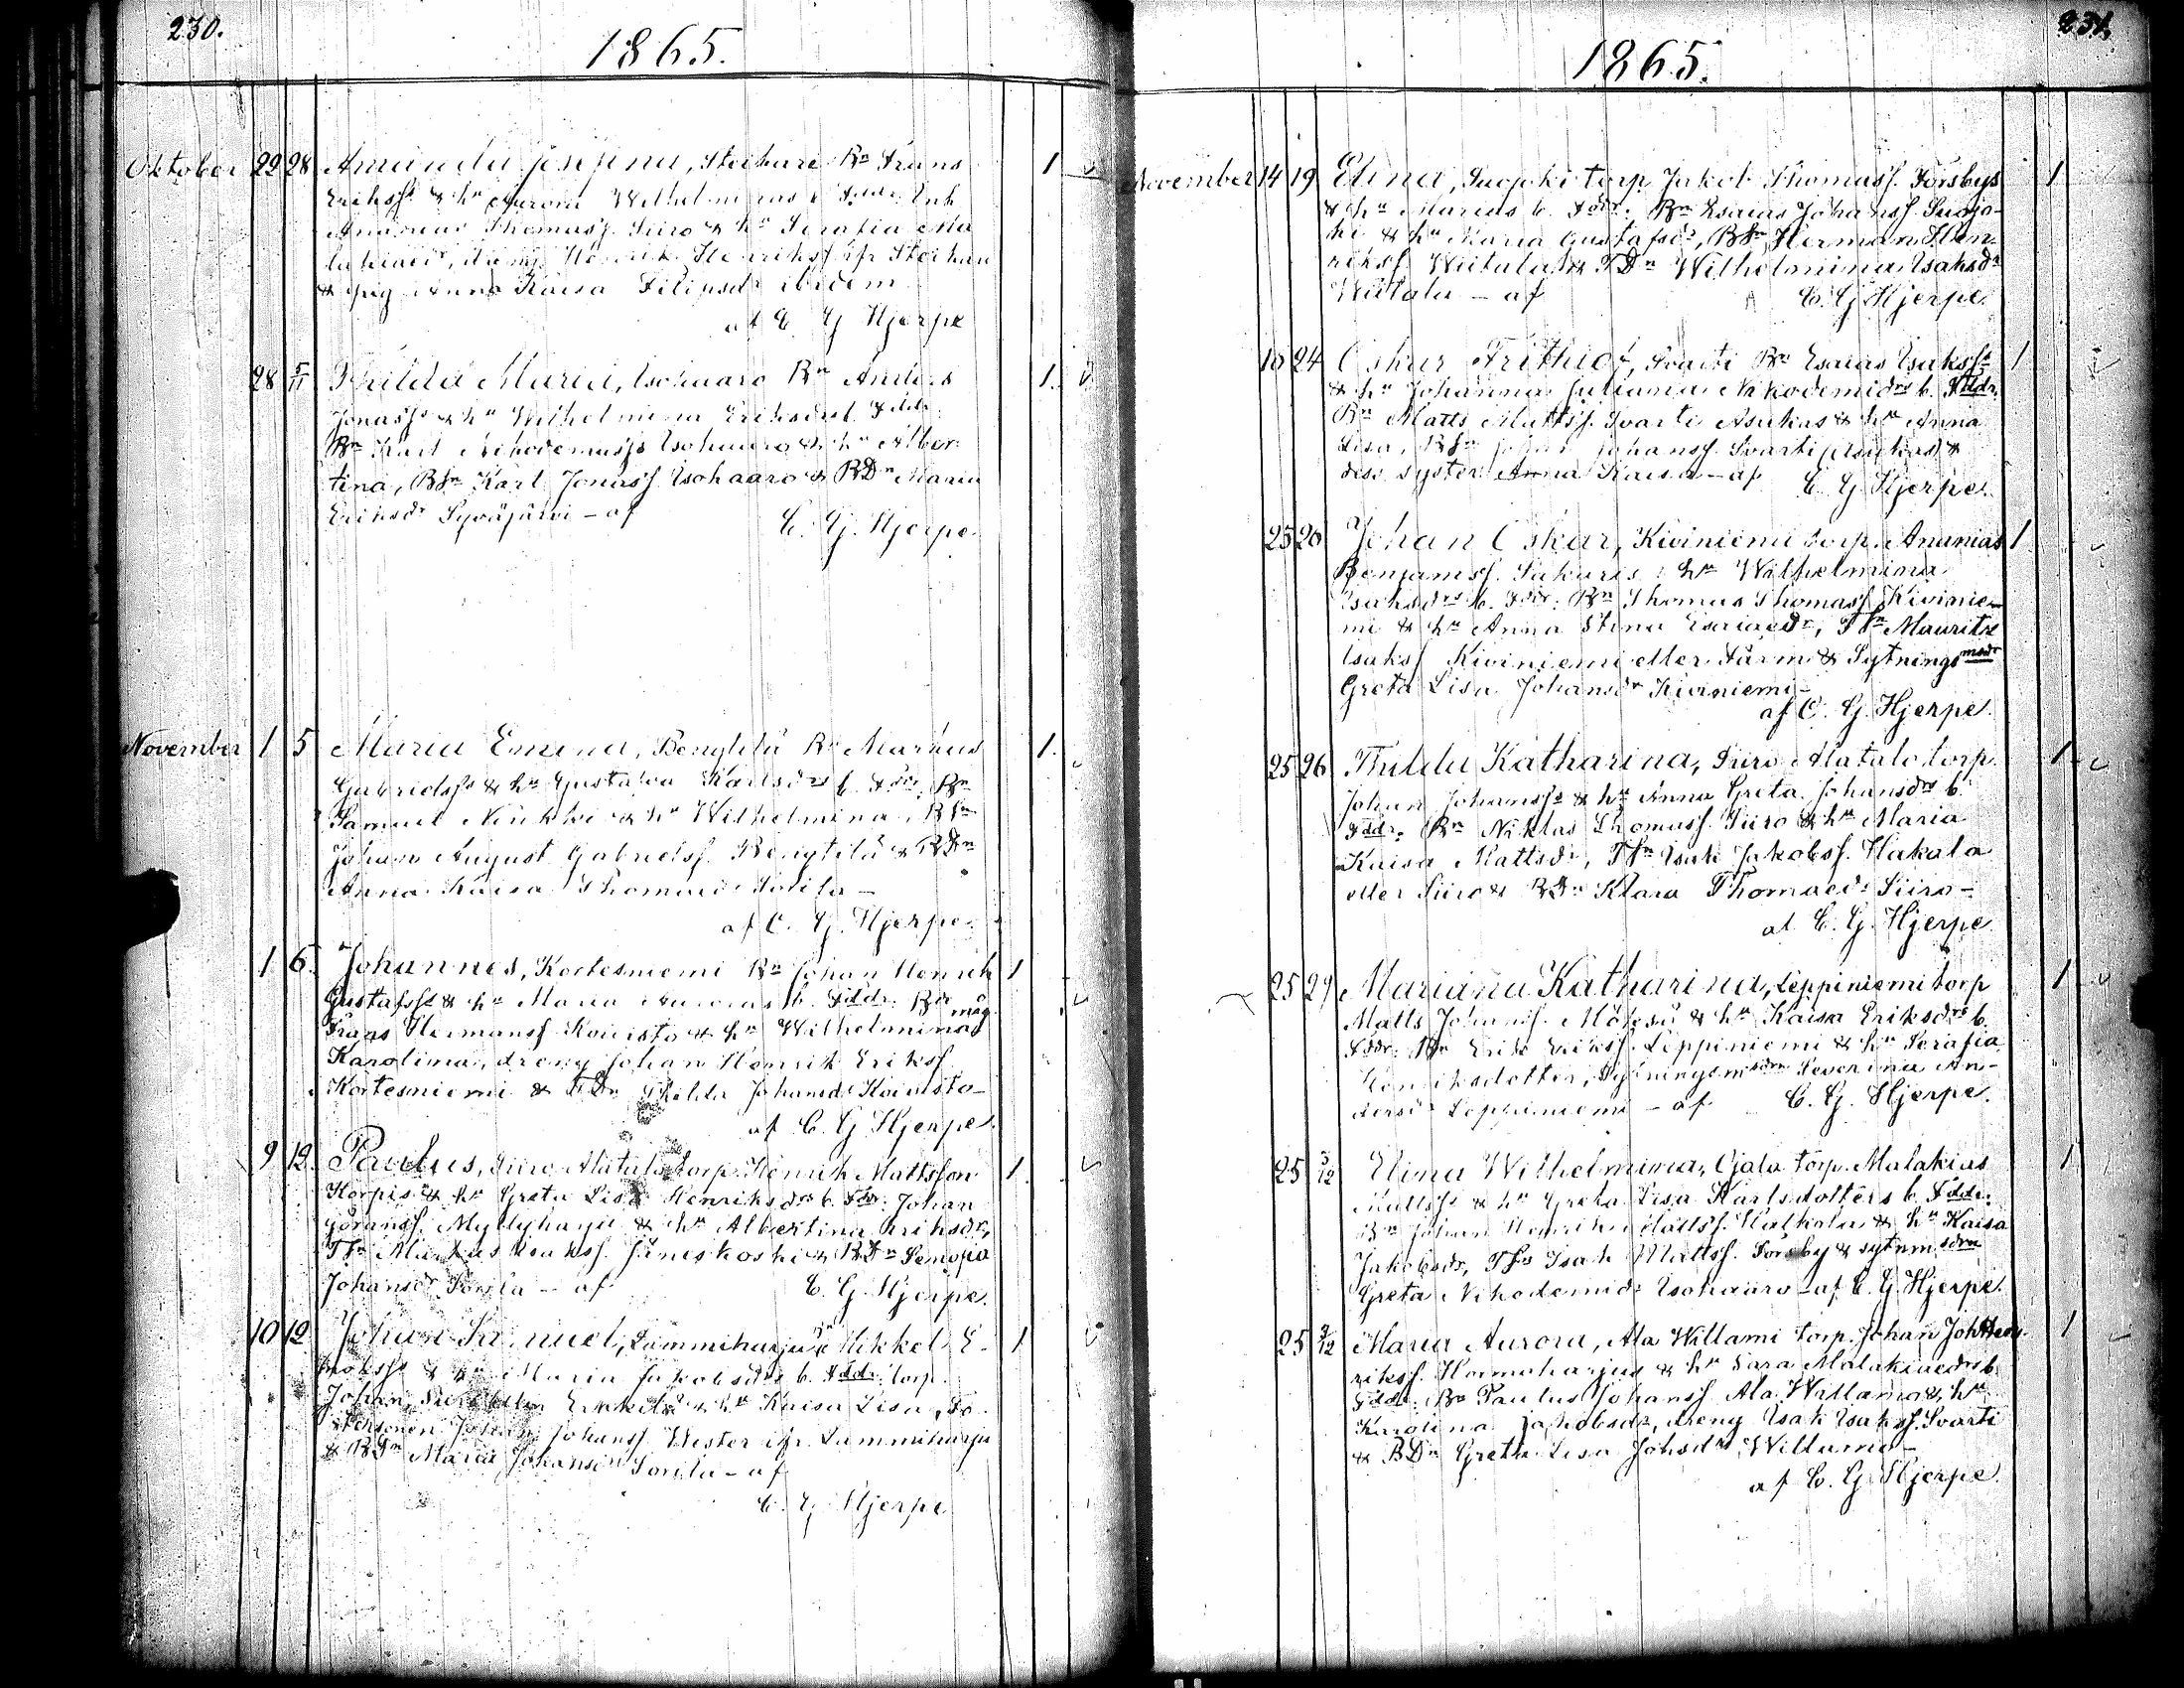 230.
1865.
Oktober 22 28 Amanda Josefina, Steihari Bn Frans 1
Erikss & hu Aurora Wilhelminas b. Fddr: Enk
Ananias Thomass. Siiro & hu Serafia Ma
lakiaedr, dräng Henrik Henrikss ifr Steihari
& pig Anna Kaisa Filipsdr ibidem
af C. G Hjerpe
28 5/11 Thilda Maria, Isohaaro Bn Anders 1.
Jonass & hu Wilhelmina Eriksdrs b. Fddr.
Bn Karl Nikodemuss Isohaaro & hu Alber
tina, BSn Karl Jonass. Isohaaro & BDn Maria
Eriksdr Syväjärvi - af C. G. Hjerpe.
November 1 5 Maria Emina, Bengtilä Bn Markus 1.
Gabrielss & hu Gustava Karlsdrs b. Fddr. Bn
Samuel & hu Wilhelmina, BSn
Johan August Gabrielss. Bengtilä & BDn
Anna Kaisa Thomaedr Sorila -
af C. G. Hjerpe.
1 6. Johannes, Kortesniemi Bn Johan Henrik 1
Gustafss & hu Maria b. Fddr: Bn
måg
Frans Hermanss. Koivisto & hu Wilhelmina
Karolina, dreng Johan Henrik Erikss.
Kortesniemi & Thilda Johansdr Koivisto -
af C. G. Hjerpe.
9 12. Paulus, Siiro Alatalo torp. Henrik Mattsson 1
Korpis & hu Greta Lisa Henriksdrs b. Fddr: Johan
Göranss. Myllyharju & hu Albertina Eriksdr,
TSn Markus Isakss. Jäneskoski & BDn Senofia
Johansdr Sorila - af C. G. Hjerpe.
10 12 Johan Samuel, Lammiharju Mikkel E- 1
& hu Maria Jakobsdrs b. Fddr: torp.
Johan Siiro eller Erkkilä & hu Kaisa Lisa,
Johan Johanss. Wester ifr. Lammiharju
& BDn Maria Johansdr Sorila - af
C. G. Hjerpe
231.
1865.
November 14 19 Elina, Suojoki torp. Jakob Thomass. Forsbys 1
& hu Marias b. Fddr: Bn Esaias Johanss. Suojo-
ki & hu Maria Gustafsdr, BSn Herman Hen-
rikss. Wiitala & TDn Wilhelmina Isaksdr
Wiitala - af C. G Hjerpe.
16 24 Oskar Frithiof, Svarti Bn Esaias Isakss 1
& hu Johanna Juliana Nikodemidrs b. Fddr.
Bn Matts Mattss. Svarti Asukas & hu Anna
Lisa, BSn Johan Johanss. Svarti (Asukas) &
des syster Anna Kaisa - af C. G Hjerpe.
25 26 Johan Oskar, Kiviniemi torp. Ananias 1
Benjamss. Sakaris & hu Wilhelmina
Isaksdrs b. Fddr: Bn Thomas Thomass. Kivinie-
mi & hu Anna Stina Esaiaedr, TSn Mauritz
Isakss. Kiviniemi eller Färm & Sytningsmsdr
Greta Lisa Johansdr Kiviniemi -
af C. G. Hjerpe.
25 26 Thilda Katharina, Siiro Alatalo torp. 1
Johan Johanss & hu Anna Greta Johansdrs b.
Fddr. Bn Niklas Thomass. Siiro & hu Maria
Kaisa Mattsdr, TSn Isak Jakobss. Hakala
eller Siiro & BDn Klara Thomaedr Siiro -
af C. G. Hjerpe
25 29 Mariana Katharina, Leppiniemi torp 1
Matts Johanss. & hu Kaisa Eriksdrs b.
Fddr. Bn Erik Erikss. Leppiniemi & hu Serafia
Henriksdotter, Sytningsmsdrn Severina An-
dersdr Leppiniemi - af C. G. Hjerpe.
25 3/12 Elina Wilhelmina, Ojala torp. Malakias 1
Mattss & hu Greta Lisa Karlsdotters b. Fddr.
Bn Johan Henrik Mattss. Halkola & hu Kaisa
Jakobsdr, TSn Isak Mattss. Forsby & sytnmsdrn
Greta Nikodemidr Isohaaro - af C. G. Hjerpe.
25 3/12 Maria Aurora, Ala Willami torp. Johan 1
rikss. Hormaharjus & hu Sara Malakiaedrs b.
Fddr. Bn Paulus Johanss. Ala Willamo & hu
Karolina Jakobsdr, dreng Isak Isakss. Svarti
& BDn Greta Lisa Johsdr Willamo -
af C. G. Hjerpe.